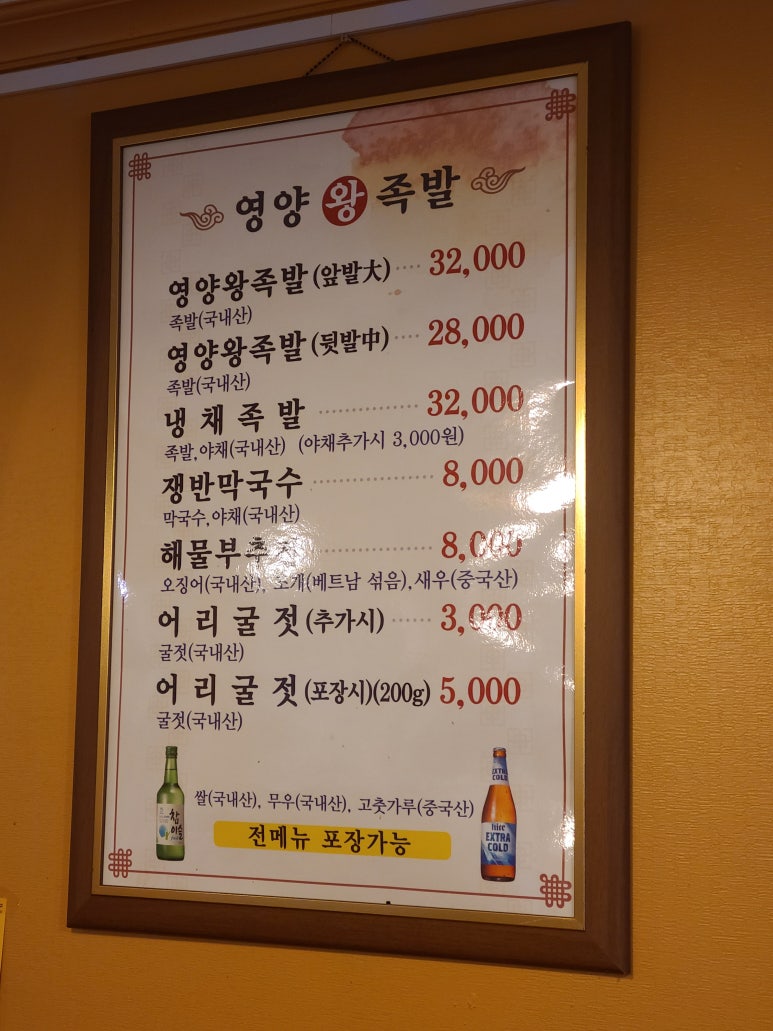 영양왕족발
영양왕족발(앞발大) ···· 32,000
족발(국내산)
영양왕족발(뒷발中) ···· 28,000
족발(국내산)
냉채족발 ················ 32,000
족발,야채(국내산) (야채추가시 3,000원)
쟁반막국수 ··················· 8,000
막국수,야채(국내산)
해물부추전 ··················· 8,000
오징어(국내산), 조개(베트남 섞음),새우(중국산)
어리굴젓(추가시) ······ 3,000
굴젓(국내산)
어리굴젓(포장시)(200g) 5,000
굴젓(국내산)
쌀(국내산), 무우(국내산), 고춧가루(중국산)
전메뉴 포장가능
참이슬
EXTRA COLD
hite
EXTRA
COLD